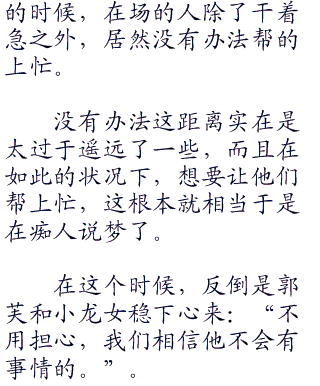 的时候，在场的人除了干着
急之外，居然没有办法帮的
上忙。
没有办法这距离实在是
太过于遥远了一些，而且在
如此的状况下，想要让他们
帮上忙，这根本就相当于是
在痴人说梦了。
在这个时候，反倒是郭
芙和小龙女稳下心来：“不
用担心，我们相信他不会有
事情的。”。